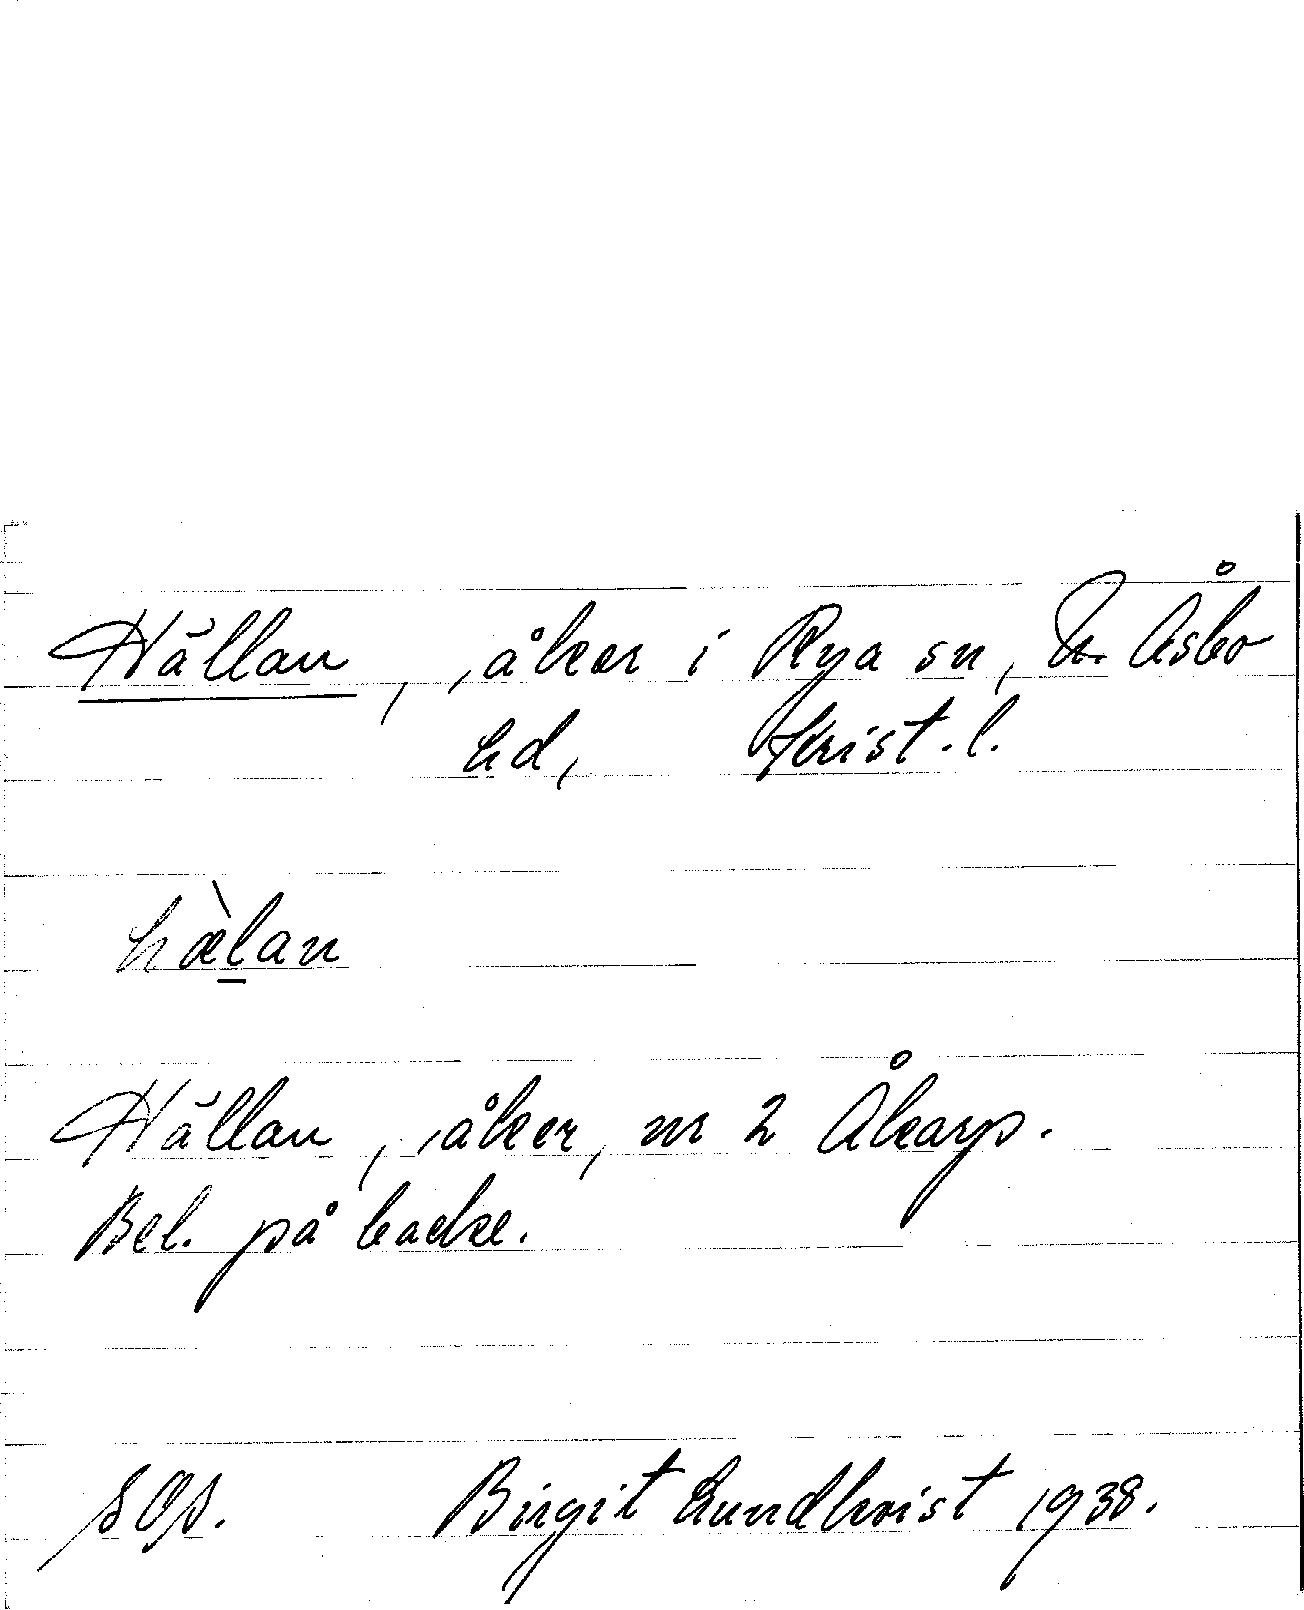 Hällan, åker i Rya sn, N. Åsbo
hd, Krist. l.
hæ̀lan
Hällan, åker, nr 2 Åkarp.
Bel. på backe.
SOP. Birgit Lundkvist 1938.